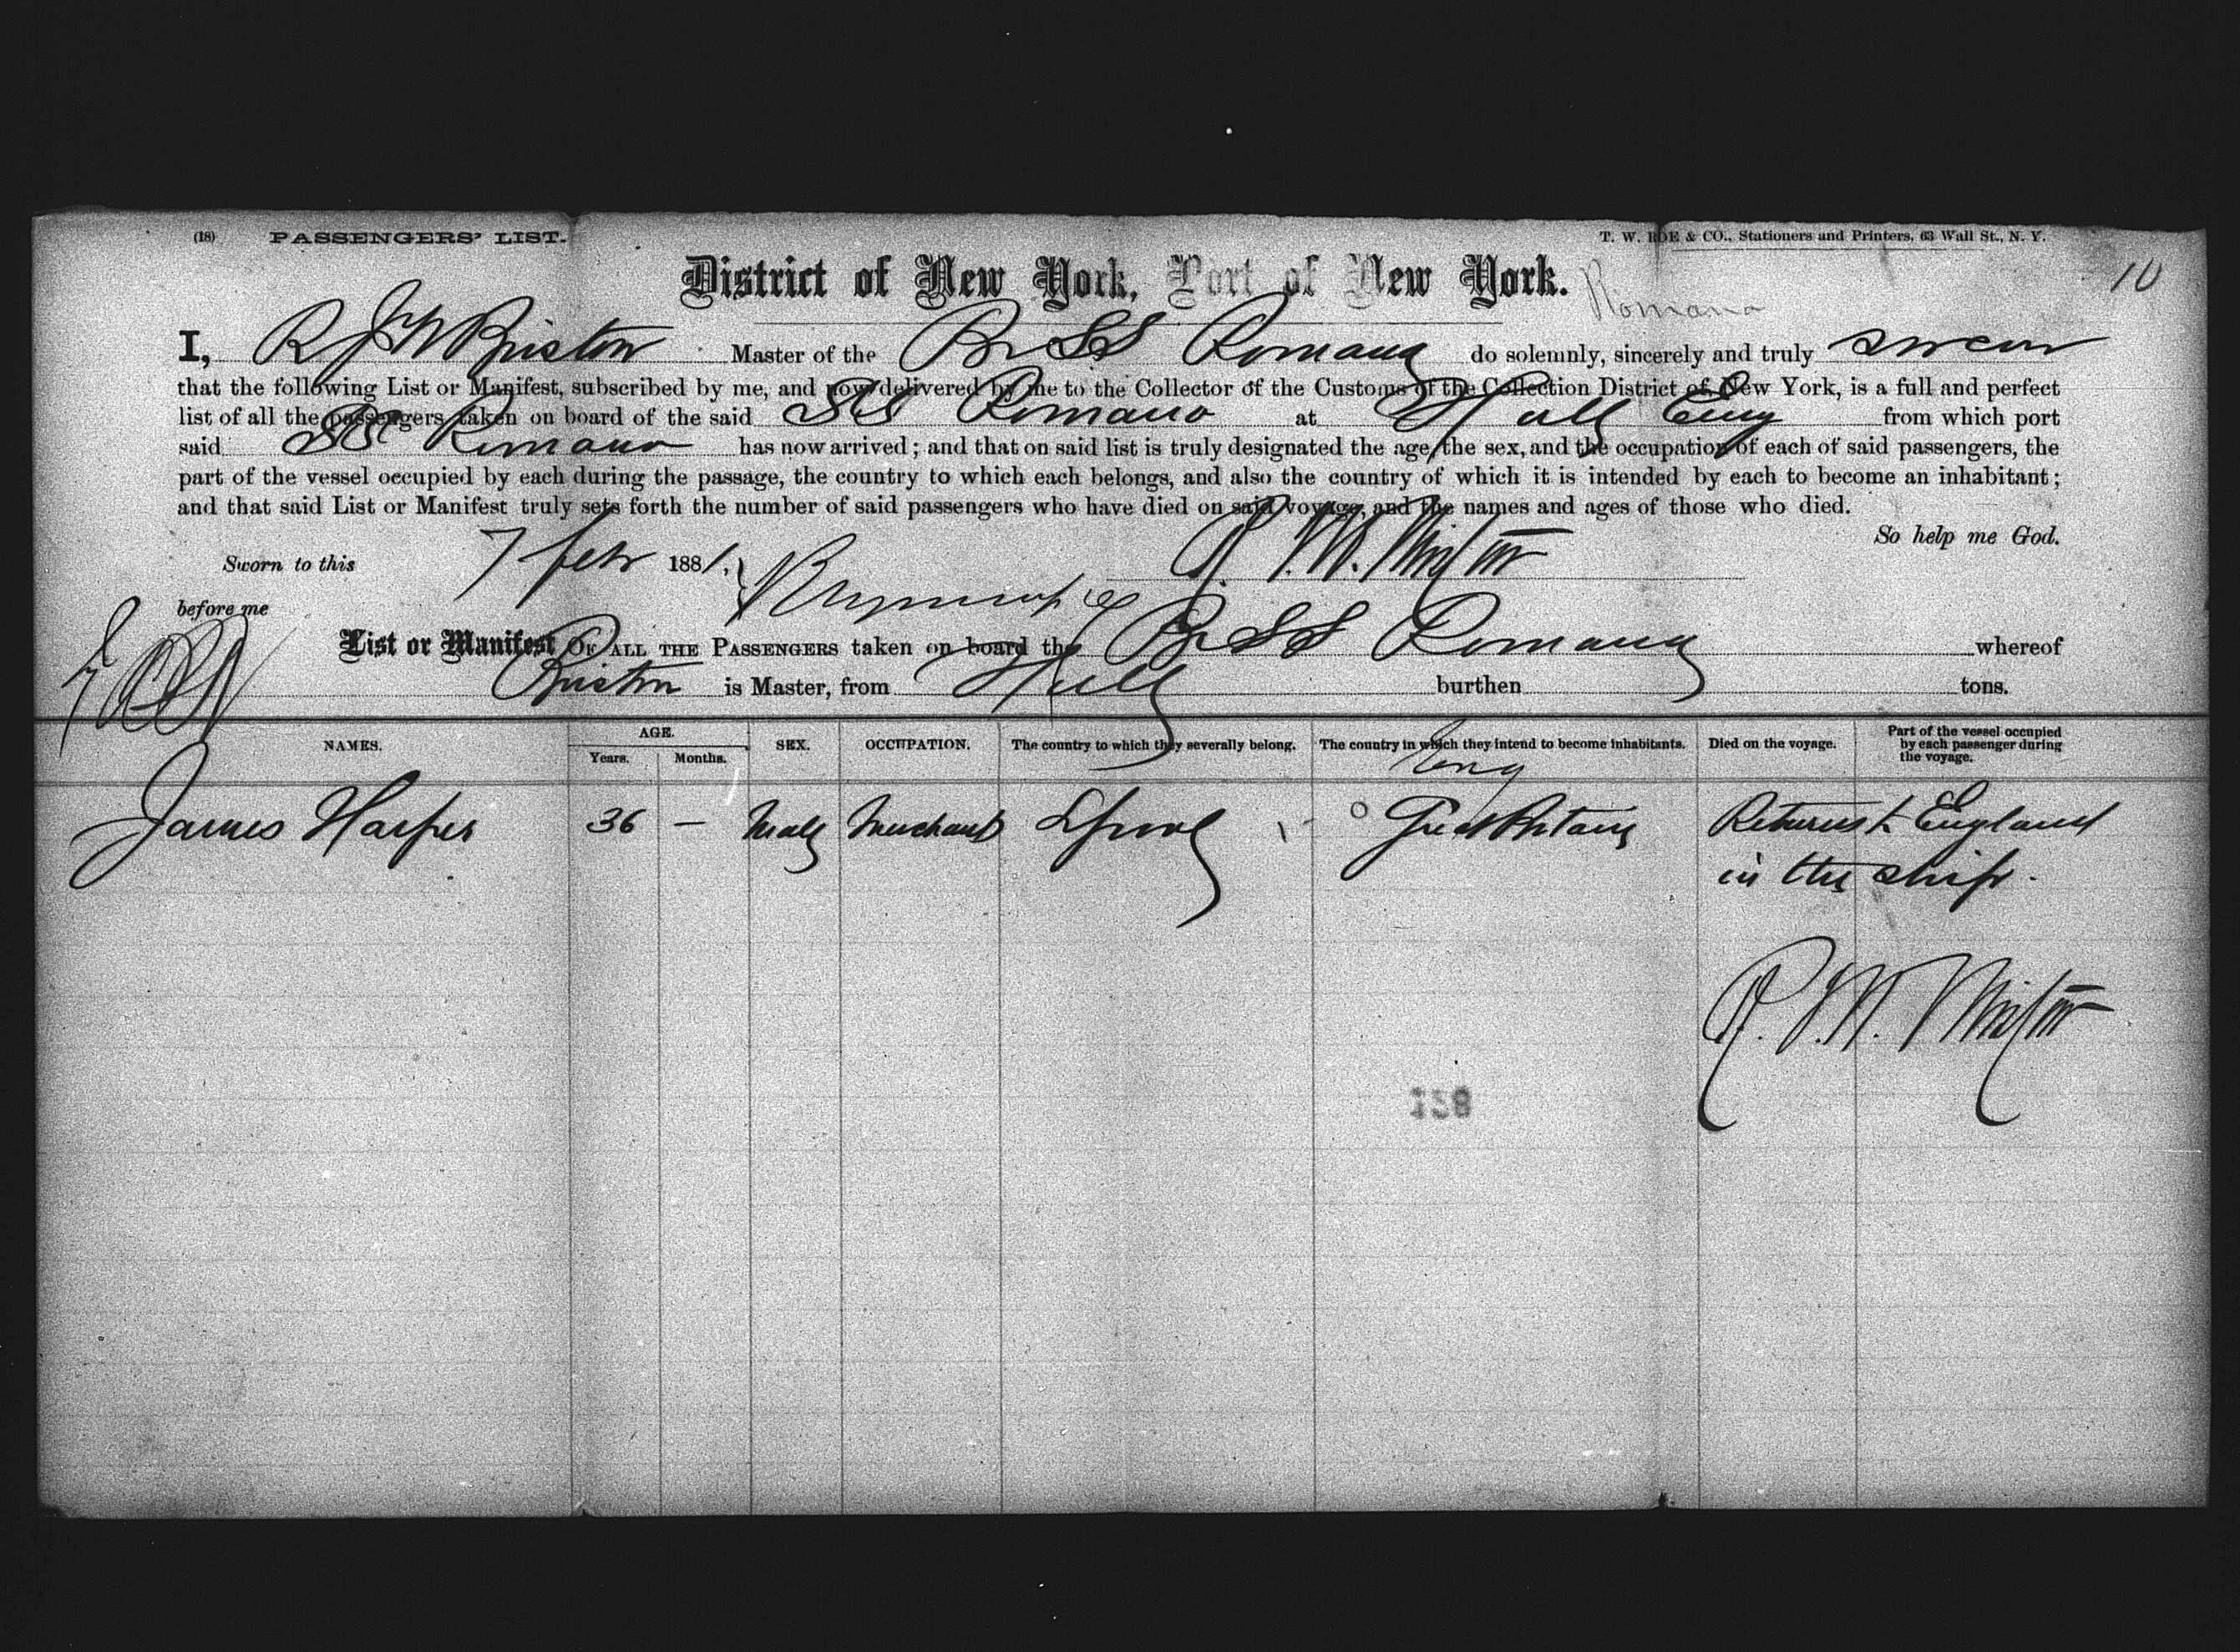 (18) PASSENGERS' LIST. T. W. ROE & CO., Stationers and Printers, 63 Wall St., N. Y.
10
District of New York, Port of New York.
Romano
I, R J W Briston Master of the Br SS Romano do solemnly, sincerely and truly swear
that the following List or Manifest, subscribed by me, and now delivered by me to the Collector of the Customs of the Collection District of New York, is a full and perfect
list of all the passengers taken on board of the said SS Romano at Hull Eng from which port
said SS Romano has now arrived; and that on said list is truly designated the age, the sex, and the occupation of each of said passengers, the
part of the vessel occupied by each during the passage, the country to which each belongs, and also the country of which it is intended by each to become an inhabitant;
and that said List or Manifest truly sets forth the number of said passengers who have died on said voyage, and the names and ages of those who died.
So help me God.
Sworn to this 7 Feb 1881.
before me
List or Manifest OF ALL THE PASSENGERS taken on board the Br SS Romano whereof
Briston is Master, from Hull Eng burthen tons.
NAMES. AGE. Years. Months. SEX. OCCUPATION. The country to which they severally belong. The country in which they intend to become inhabitants. Died on the voyage. Part of the vessel occupied by each passenger during the voyage.
James Harper 36 — Male Merchant Lpool Great Britain Returns to England
in the ship.
138